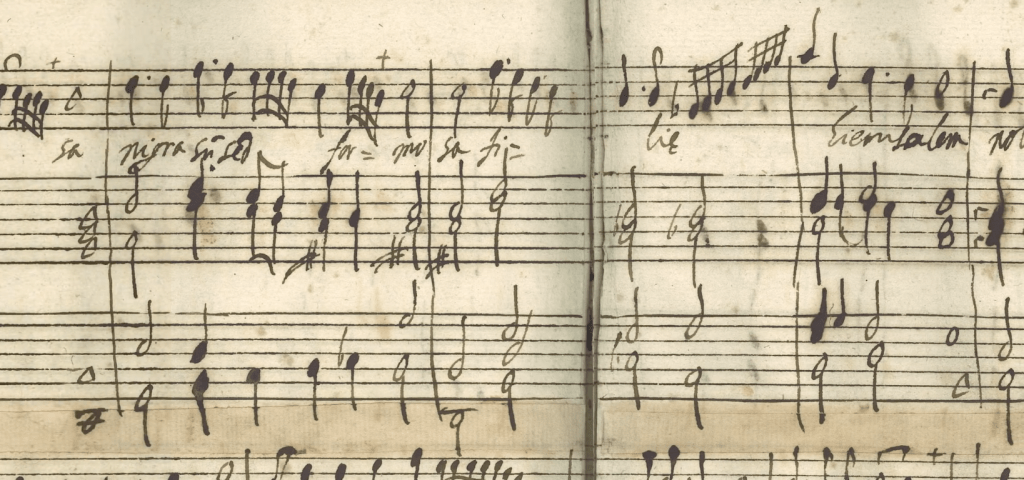 sa nigra sũ sed for= mo sa fi= lię hierusalem no